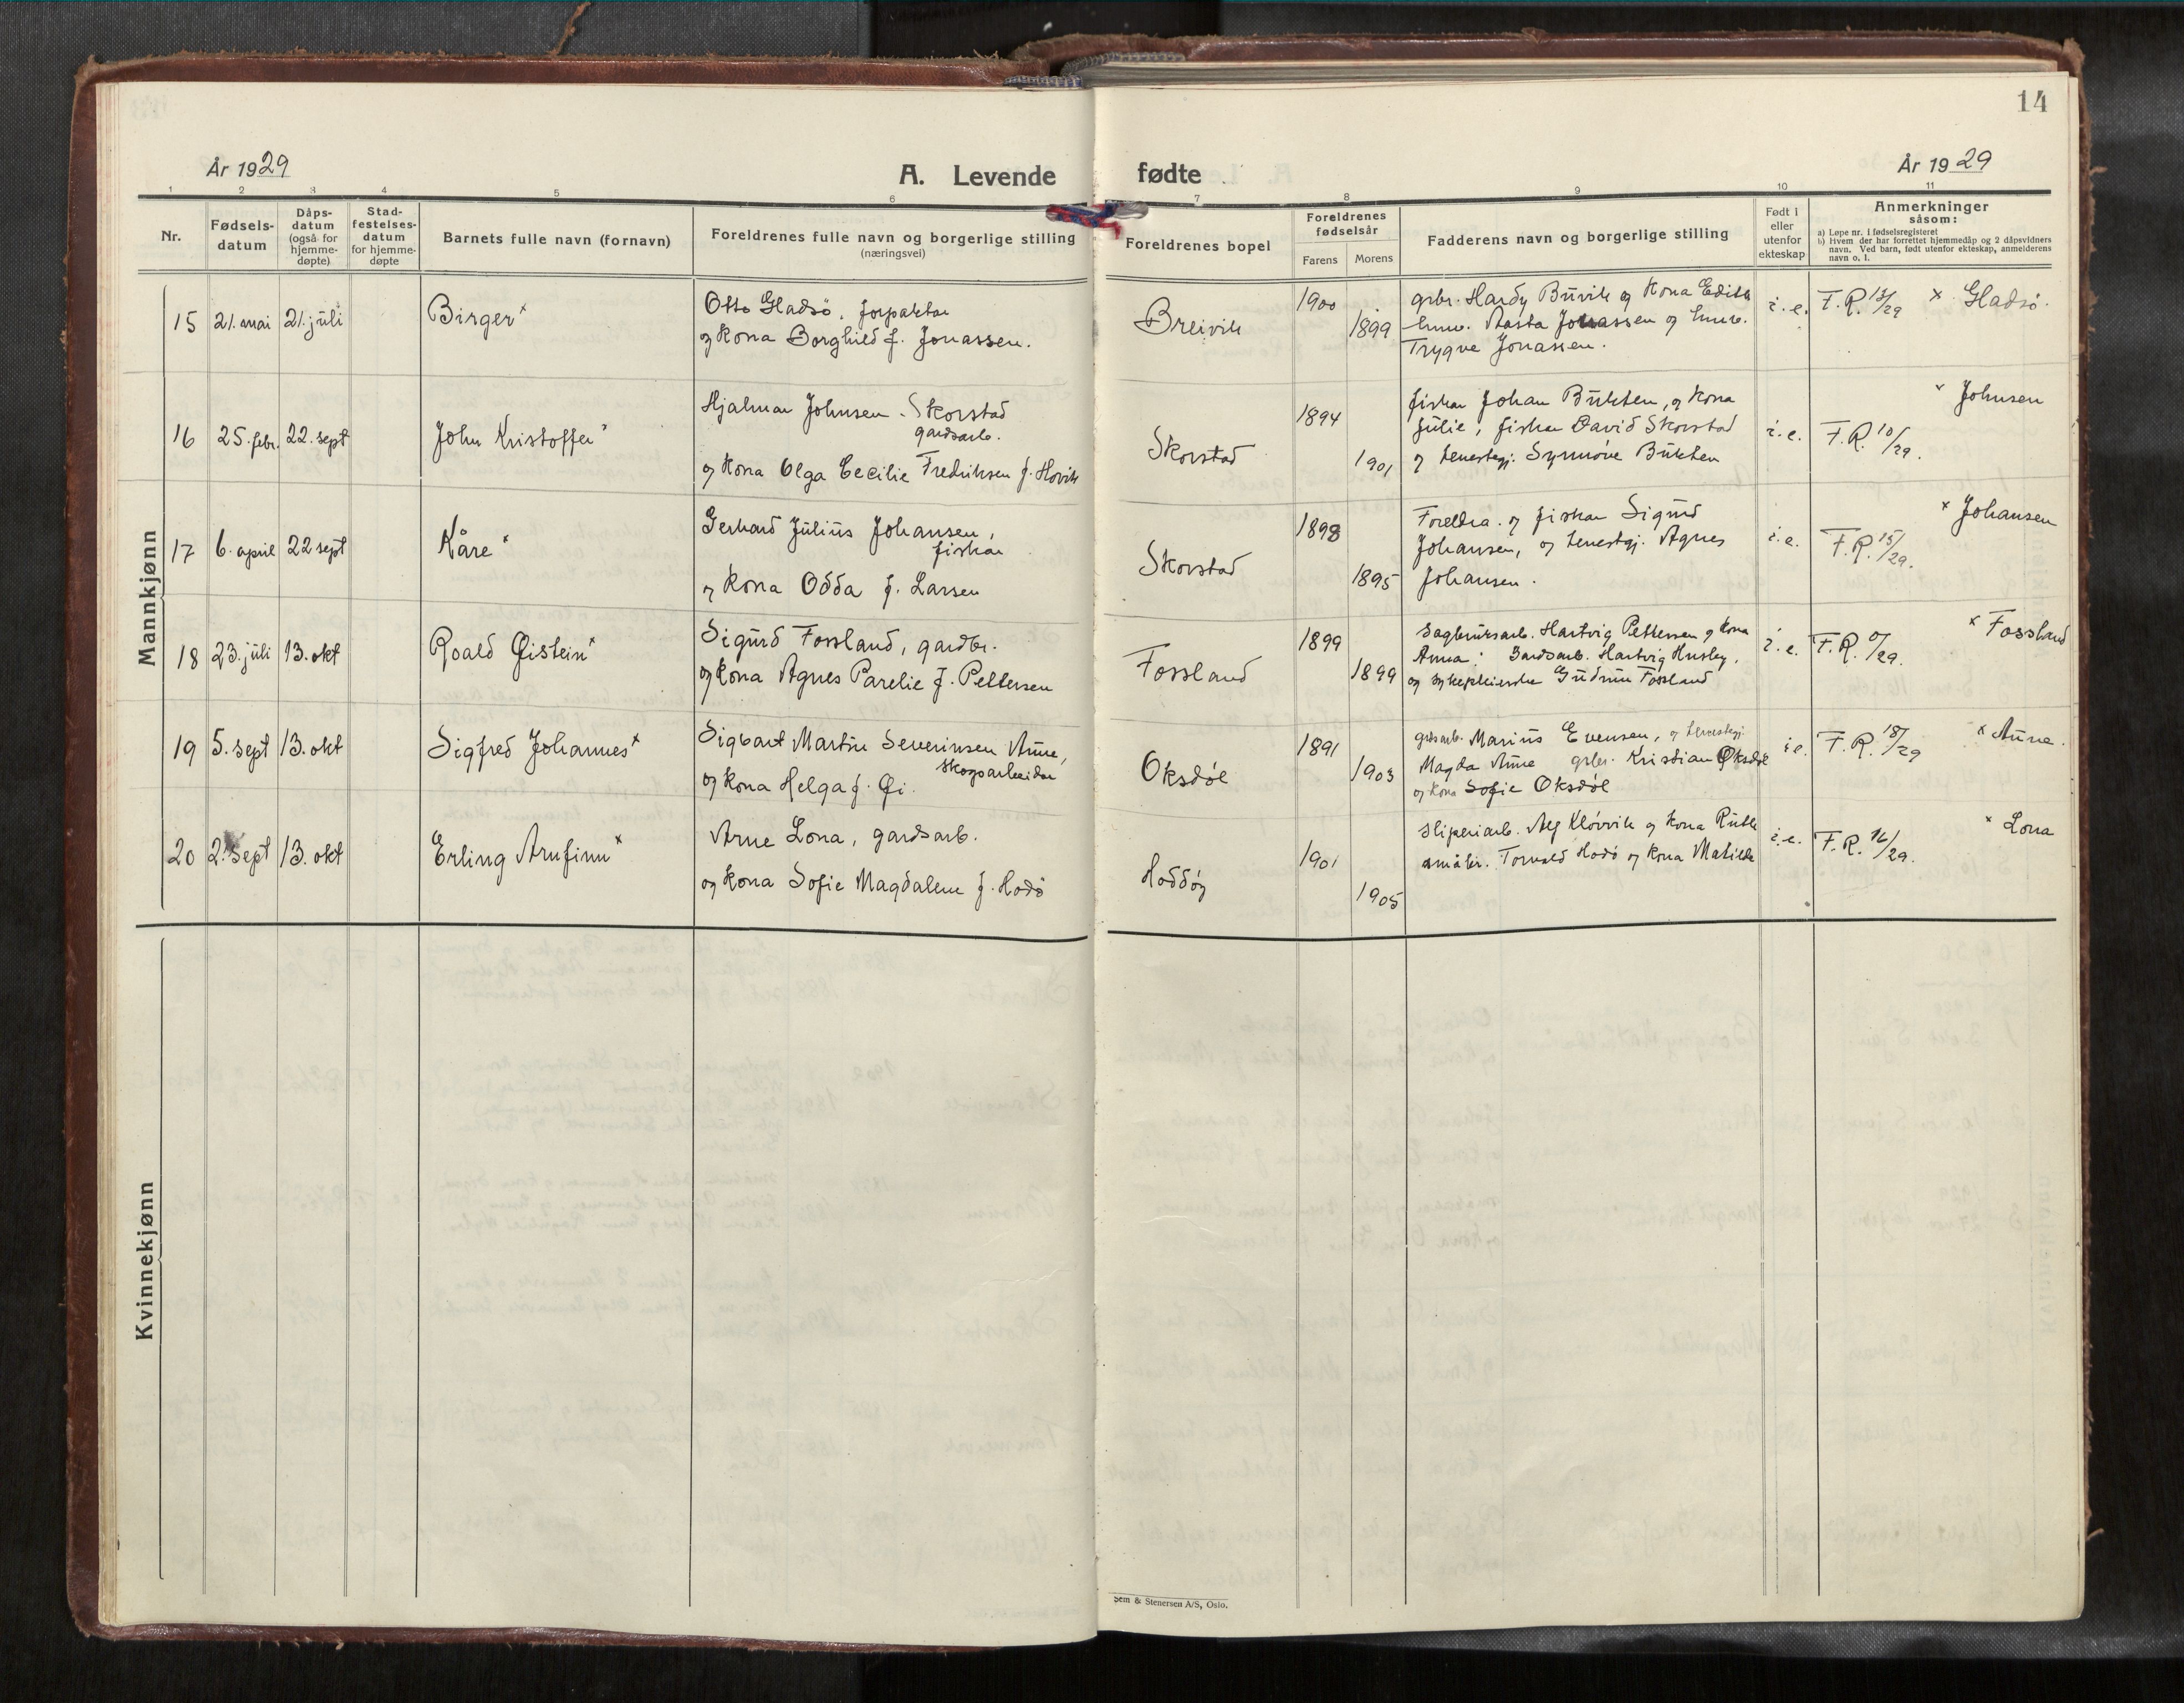 14
År 1929
A. Levende fødte
År 1929
1 2 3 4 5 6 7 8 9 10 11
Nr.
Fødsels-
datum
Dåps-
datum
(også for
hjemme-
døpte)
Stad-
festelses-
datum
for hjemme-
døpte
Barnets fulle navn (fornavn)
Foreldrenes fulle navn og borgerlige stilling
(næringsvei)
Foreldrenes bopel
Foreldrenes
fødselsår
Farens Morens
Fadderens navn og borgerlige stilling
Født i
eller
utenfor
ekteskap
Anmerkninger
såsom:
a) Løpe nr. i fødselsregisteret
b) Hvem der har forrettet hjemmedåp og 2 dåpsvidners
navn. Ved barn, født utenfor ekteskap, anmelderens
navn o. l.
Mannkjønn
15 21. mai 21. júli Birger x
Otto Gladsö, forpaktar
og Kona Borghild f. Jonassen.
Breivik
1900
1899
grbr. Hardy Búvik og Kona Edith
Aasta Jonassen og
Trygve Jonassen.
i. e.
F. R. 12/29
x Gladsö.
16 25. febr. 22. sept John Kristoffer x
Hjalmar Johnsen Skorstad
gardsarb.
og Kona Olga Cecilie Fredriksen f. Hovik
Skorstad
1894
1901
fiskar Johan Búkten, og Kona
Júlie, fiskar David Skorstad
og tenestegj. Synnöve Búkten
i. e.
F. R. 10/29.
x Johnsen
17 6. april 22 sept Kåre x
Gerhard Júliús Johansen,
fiskar
og Kona Odda f. Larsen
Skorstad
1898
1895
Foreldra og fiskar Sigúrd
Johansen, og tenestgj. Agnes
Johansen.
i. e.
F. R. 15/29.
x Johansen
18 23. júli 13. okt Roald Øistein x
Sigúrd Fossland, gardbr.
og Kona Agnes Parelie f. Pettersen
Fossland
1899
1899
Sagbrúksarb. Hartvig Pettersen og Kona
Anna. Gardsarb. Hartvig Husby,
og sykepleierske Gúdrún Fossland
i. e.
F. R. /29.
x Fossland
19 5. sept 13. okt Sigfred Johannes x
Sigbart Martin Severinsen Aúne,
skogsarbeidar
og Kona Helga f. Øi.
Oksdöl
1891
1903
grdsarb. Mariús Evensen, og tenestegj.
Magda Aúne grbr. Kristian Øksdöl
og Kona Sofie Oksdöl
i e.
F. R. 18/29
x Aúne.
20 2. sept 13. okt Erling Arnfinn x
Arne Lona, gardsarb.
og Kona Sofie Magdalene f. Hodö
Hoddöy
1901
1905
Sliperiarb. Alf Klövvik og Kona Rúth
småbr. Torvald Hodö og Kona Matilde
i. e.
F. R. 16/29.
x Lona
Kvinnekjønn
Sem & Stenersen A/S, Oslo.